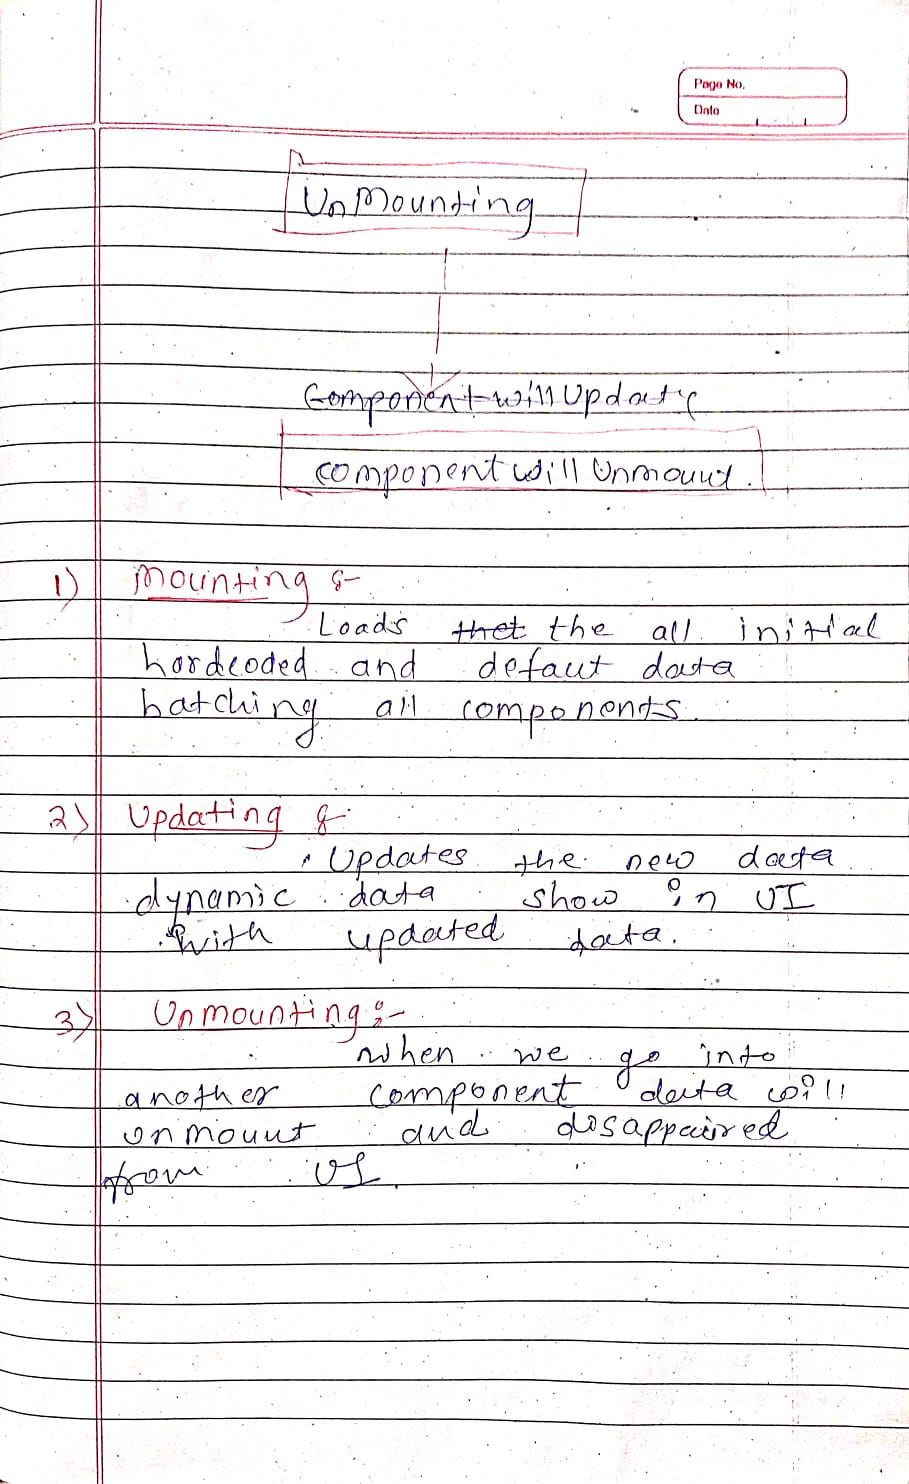 Page No.
Date
UnMounting
ComponentwillUpdate
componentwillUnmount.
1) Mounting :-
Loads thet the all initial
hardcoded and defaut data
batching all components.
2) Updating :-
Updates the new data
dynamic data show in UI
with updated data.
3) Unmounting :-
when we go into
another component data will
unmount and disappaired
from UI.